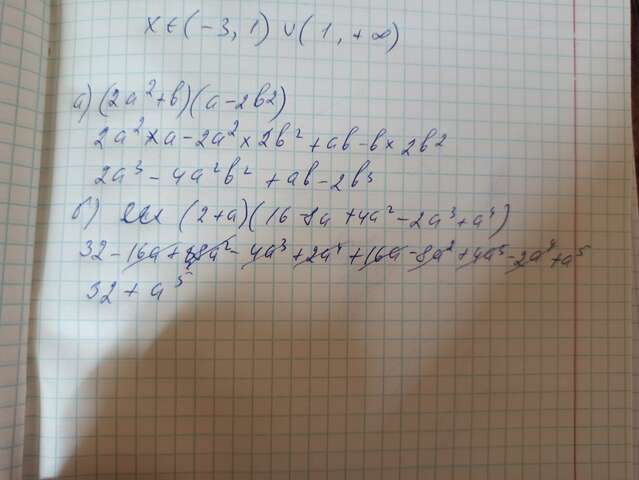 x ∈ (-3, 1) ∪ (1, +∞)
а) (2a²+b)(a-2b²)
2a²×a-2a²×2b²+ab-b×2b²
2a³-4a²b²+ab-2b³
б) (2+a)(16-8a+4a²-2a³+a⁴)
32-16a+8a²-4a³+2a⁴+16a-8a²+4a³-2a⁴+a⁵
32+a⁵